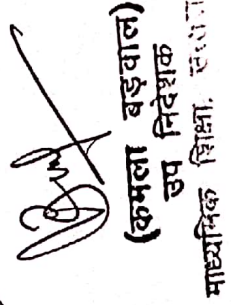 (कमला बड़वाल)
उप निदेशक
माध्यमिक शिक्षा,